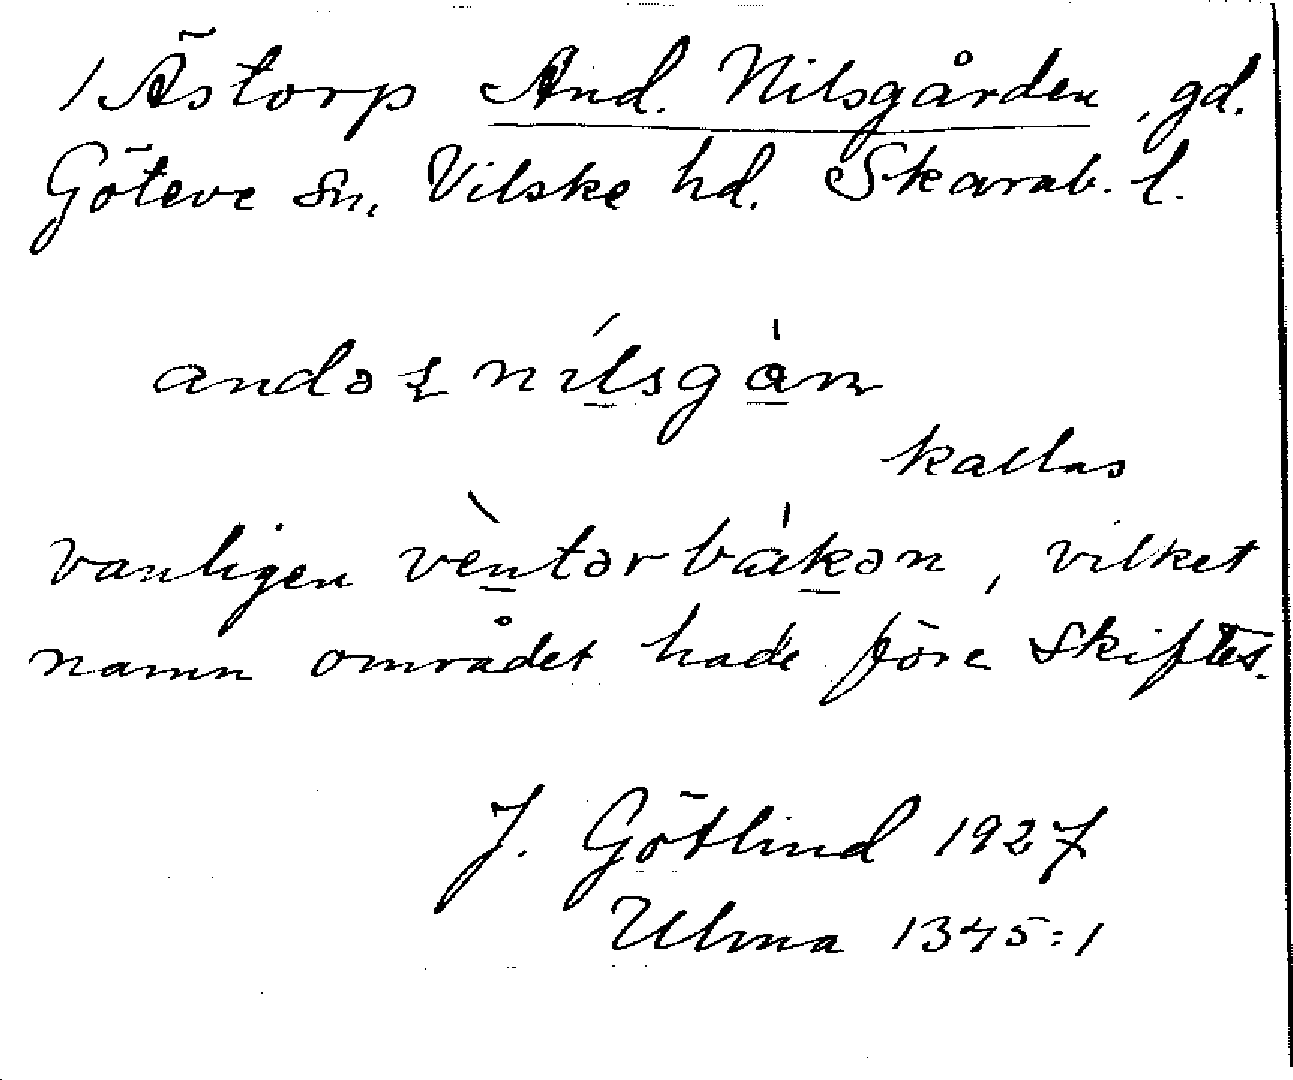 1 Ästorp And. Nilsgården, gd.
Göteve sn, Vilske hd. Skarab. l.
andəʂ nílsgàn
kallas
vanligen vèntərbàkən, vilket
namn området hade före skiftet.
J. Götlind 1927
Ulma 1345:1